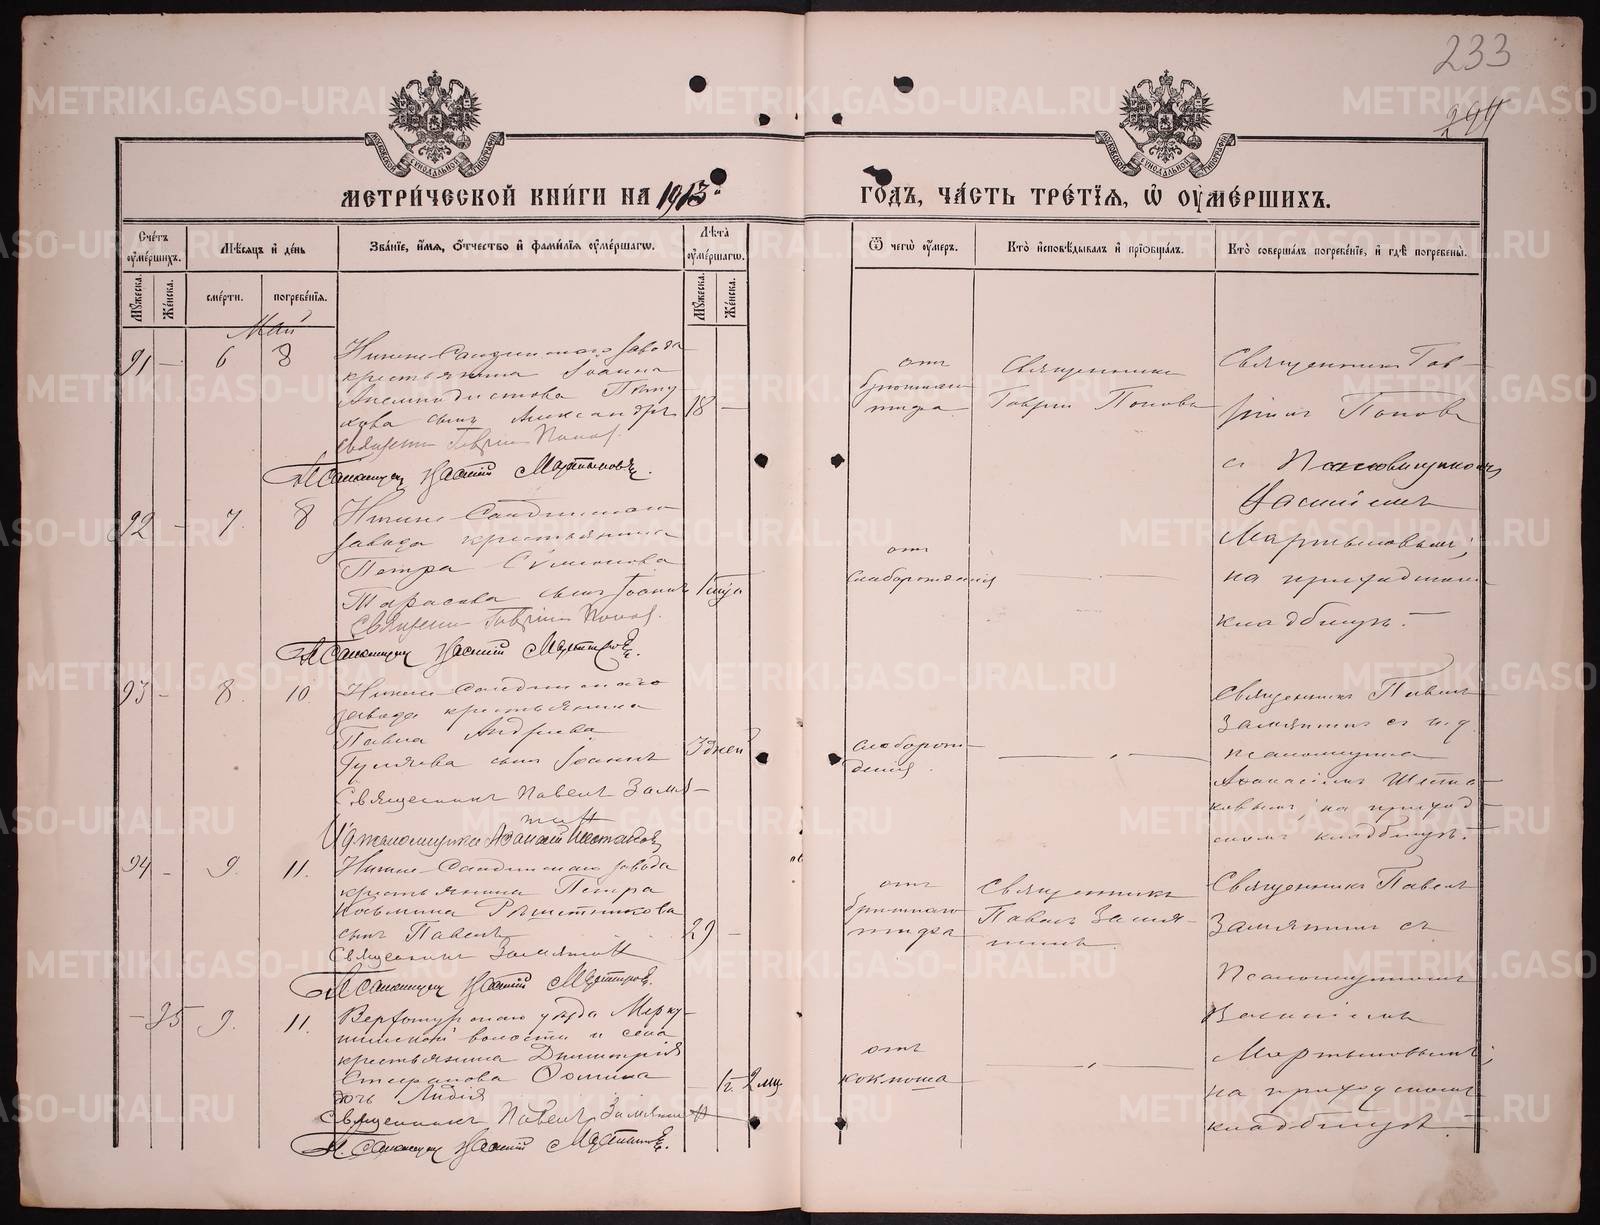 233
244
МЕТРИ́ЧЕСКОЙ КНИ́ГИ НА 1913
ГОДЪ, ЧА́СТЬ ТРЕ́ТІЯ, Ѽ ОУМЕ́РШИХЪ.
Сче́тъ оуме́ршихъ.
Мꙋжеска.
Же́нска.
Мѣ́сяцъ и де́нь
сме́рти.
погребе́нїѧ.
Зва́нїе, и́мѧ, ѻ́тчество и фами́лїѧ оуме́ршагѡ.
Лѣ́та оуме́ршагѡ.
Мꙋжеска.
Же́нска.
Ѿ чегѡ̀ оу́меръ.
Кто̀ исповѣ́дывалъ и прїѡбща́лъ.
Кто̀ соверша́лъ погребе́нїе, и гдѣ̀ погребены̀.
Май
91 — 6 8
Нижне-Салдинскаго завода
крестьянина Іоанна
сынъ Александръ
18 —
Священникъ Гавріилъ Попов.
Псаломщик Василій Мартынов.
отъ
брюшнаго
тифа
Священникъ
Гавріил Попов
Священникъ Гав-
ріилъ Попов
съ Псаломщикомъ
Василіемъ
Мартыновымъ,
на приходском
кладбищѣ.
92 — 7. 8
Нижне-Салдинскаго
завода крестьянина
Петра Симонова
Тарасова сынъ Іоаннъ
Священник Гавріил Попов.
Псаломщик Василій Мартынов.
отъ
слаборожденія
93 — 8. 10.
Нижне-Салдинскаго
завода крестьянина
Павла Андреева
Гуляева сынъ Іоаннъ
3 дней
Священникъ Павелъ Замя-
тин
И. д. псаломщика Афанасій Шестаков
слаборож-
денія.
Священникъ Павел
Замятинъ съ и. д.
псаломщика
Афанасіем Шеста-
ковым, на приход-
ском кладбищѣ.
94 — 9. 11.
Нижне-Салдинскаго завода
крестьянина Петра
Козьмина Рѣшетникова
сынъ Павелъ
29 —
Священникъ Замятин
Псаломщик Василій Мартынов.
отъ
брюшнаго
тифа
Священникъ
Павелъ Замя-
тинъ.
Священникъ Павелъ
Замятинъ съ
Псаломщиком
Василіем
Мартыновым,
на приходском
кладбищѣ.
— 35 9. 11.
Верхотурскаго уѣзда Мерку-
шинской волости и села
крестьянина Димитрія
Стефанова Фомина
дочь Лидія
— 1 г. 2 мц.
Священникъ Павелъ Замятин
Псаломщик Василій Мартынов.
отъ
коклюша
METRIKI.GASO-URAL.RU